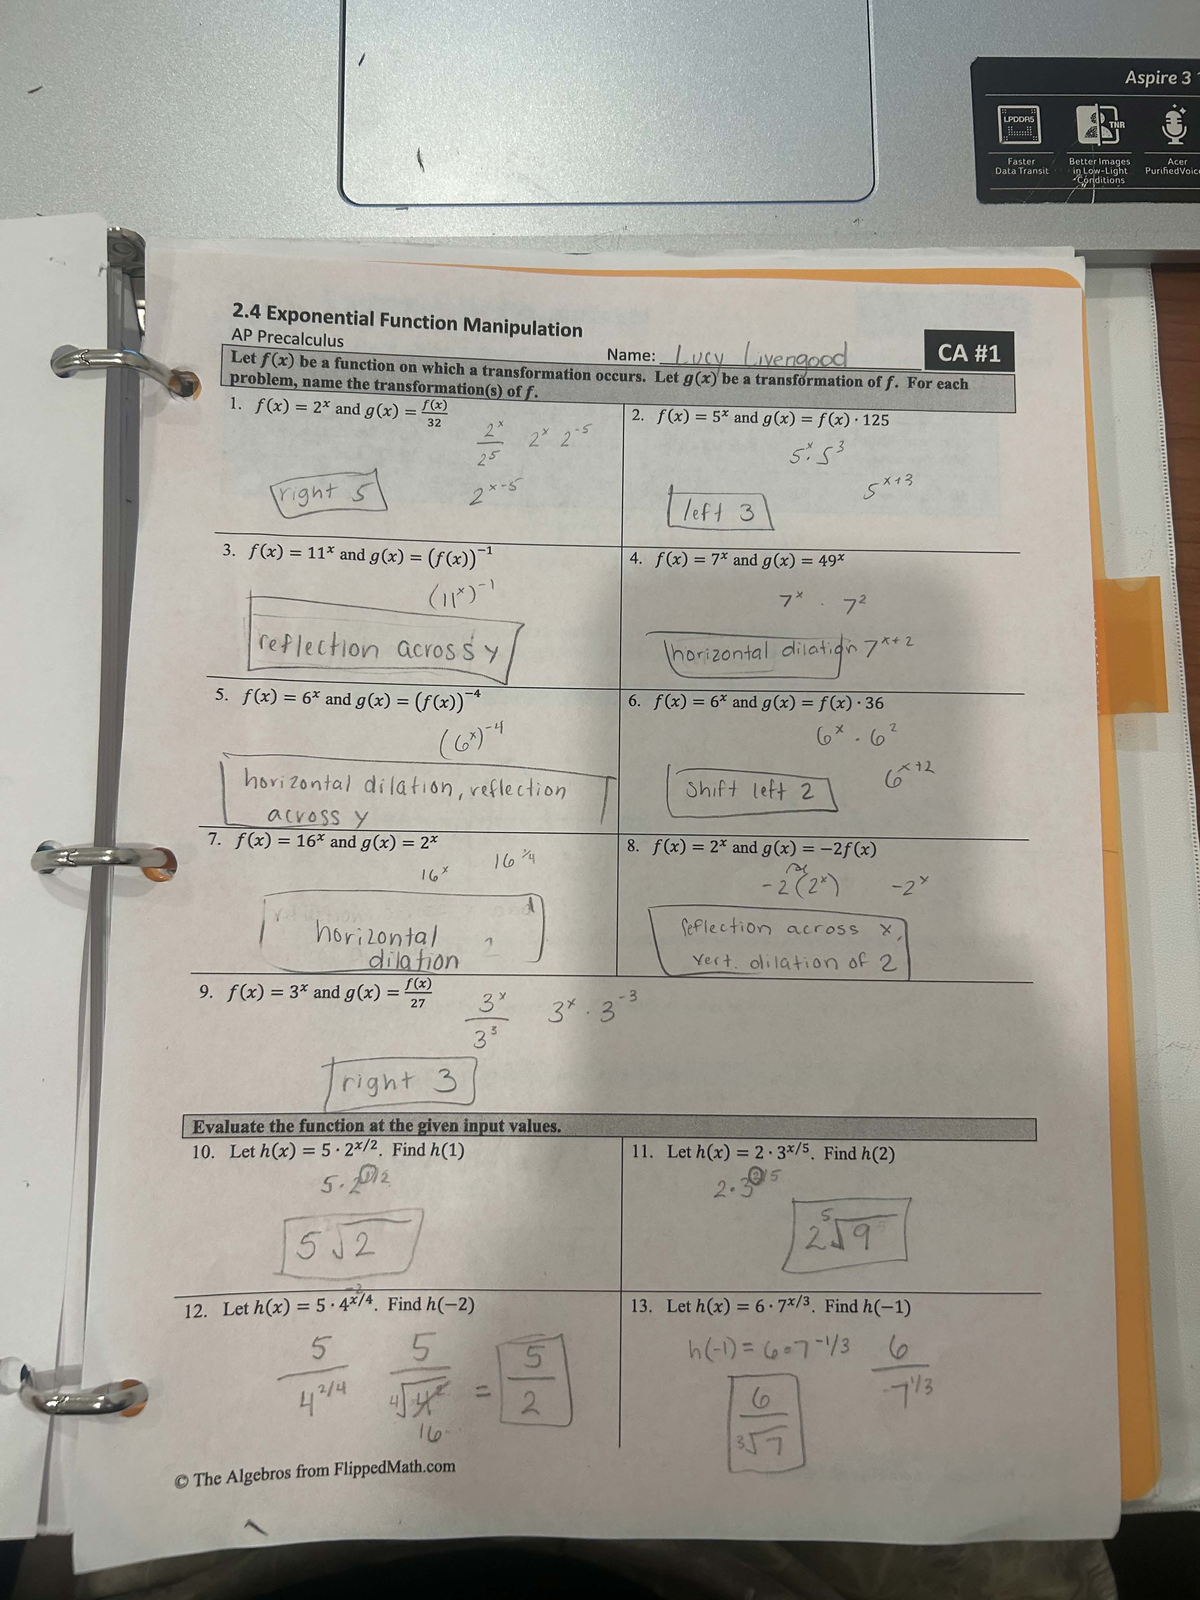 Aspire 3
LPDDR5
TNR
Faster
Data Transit
Better Images
in Low-Light
Conditions
Acer
PurifiedVoice
2.4 Exponential Function Manipulation
AP Precalculus
Name: Lucy Livengood
CA #1
Let f(x) be a function on which a transformation occurs. Let g(x) be a transformation of f. For each
problem, name the transformation(s) of f.
1. f(x) = 2ˣ and g(x) = f(x)/32
2ˣ/2⁵ 2ˣ 2⁻⁵
right 5
2ˣ⁻⁵
2. f(x) = 5ˣ and g(x) = f(x) · 125
5ˣ · 5³
5ˣ⁺³
left 3
3. f(x) = 11ˣ and g(x) = (f(x))⁻¹
(11ˣ)⁻¹
reflection across y
4. f(x) = 7ˣ and g(x) = 49ˣ
7ˣ · 7²
horizontal dilation 7ˣ⁺²
5. f(x) = 6ˣ and g(x) = (f(x))⁻⁴
(6ˣ)⁻⁴
horizontal dilation, reflection
across y
6. f(x) = 6ˣ and g(x) = f(x) · 36
6ˣ · 6²
6ˣ⁺²
shift left 2
7. f(x) = 16ˣ and g(x) = 2ˣ
16ˣ
horizontal
dilation
8. f(x) = 2ˣ and g(x) = −2f(x)
-2(2ˣ) -2ˣ
reflection across x,
vert. dilation of 2
9. f(x) = 3ˣ and g(x) = f(x)/27
3ˣ/3³ 3ˣ · 3⁻³
right 3
Evaluate the function at the given input values.
10. Let h(x) = 5 · 2^(x/2). Find h(1)
5 · 2^(1/2)
5√2
11. Let h(x) = 2 · 3^(x/5). Find h(2)
2 · 3^(2/5)
2 ⁵√9
12. Let h(x) = 5 · 4^(x/4). Find h(−2)
-2
5/4^(2/4) 5/⁴√4² = 5/2
16
13. Let h(x) = 6 · 7^(x/3). Find h(−1)
h(-1) = 6 · 7^(-1/3) 6/7^(1/3)
6/³√7
© The Algebros from FlippedMath.com